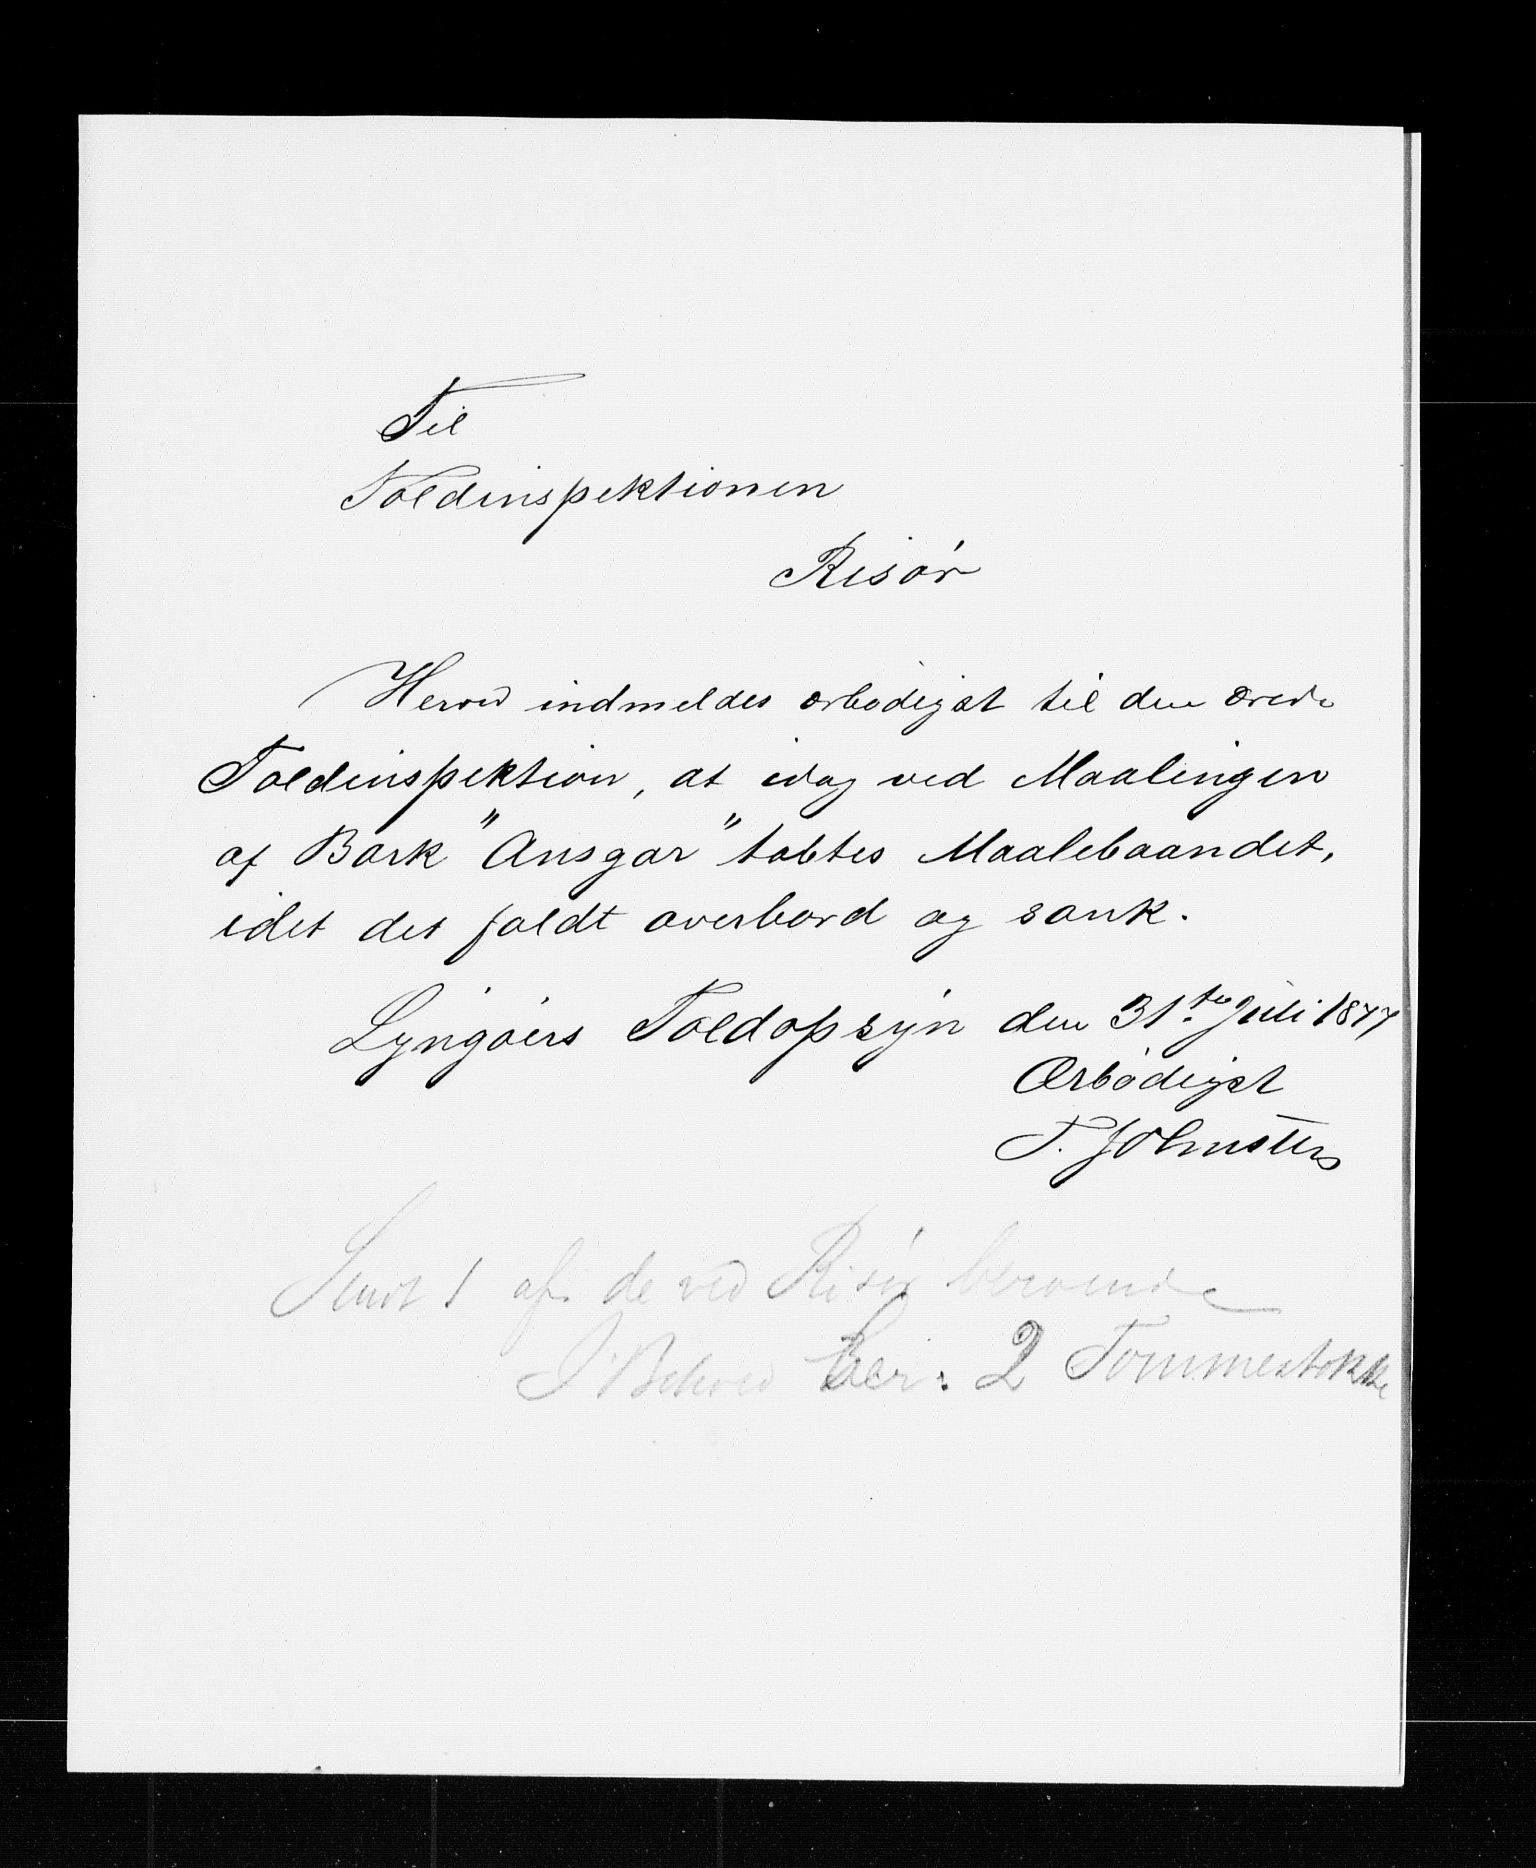 Til
Toldinspektionen
Risør
Herved indmeldes ærbødigst til den ærede
Toldinspektion, at idag ved Maalingen
af Bark "Ansgar" tabtes Maalebaandet,
idet det faldt overbord og sank.
Lyngøers Toldopsyn den 31te Juli 1877
Ærbødigst
T. Johnsten
Sendt 1 af de ved Risør beroende
I Behold her: 2 Tommestokke